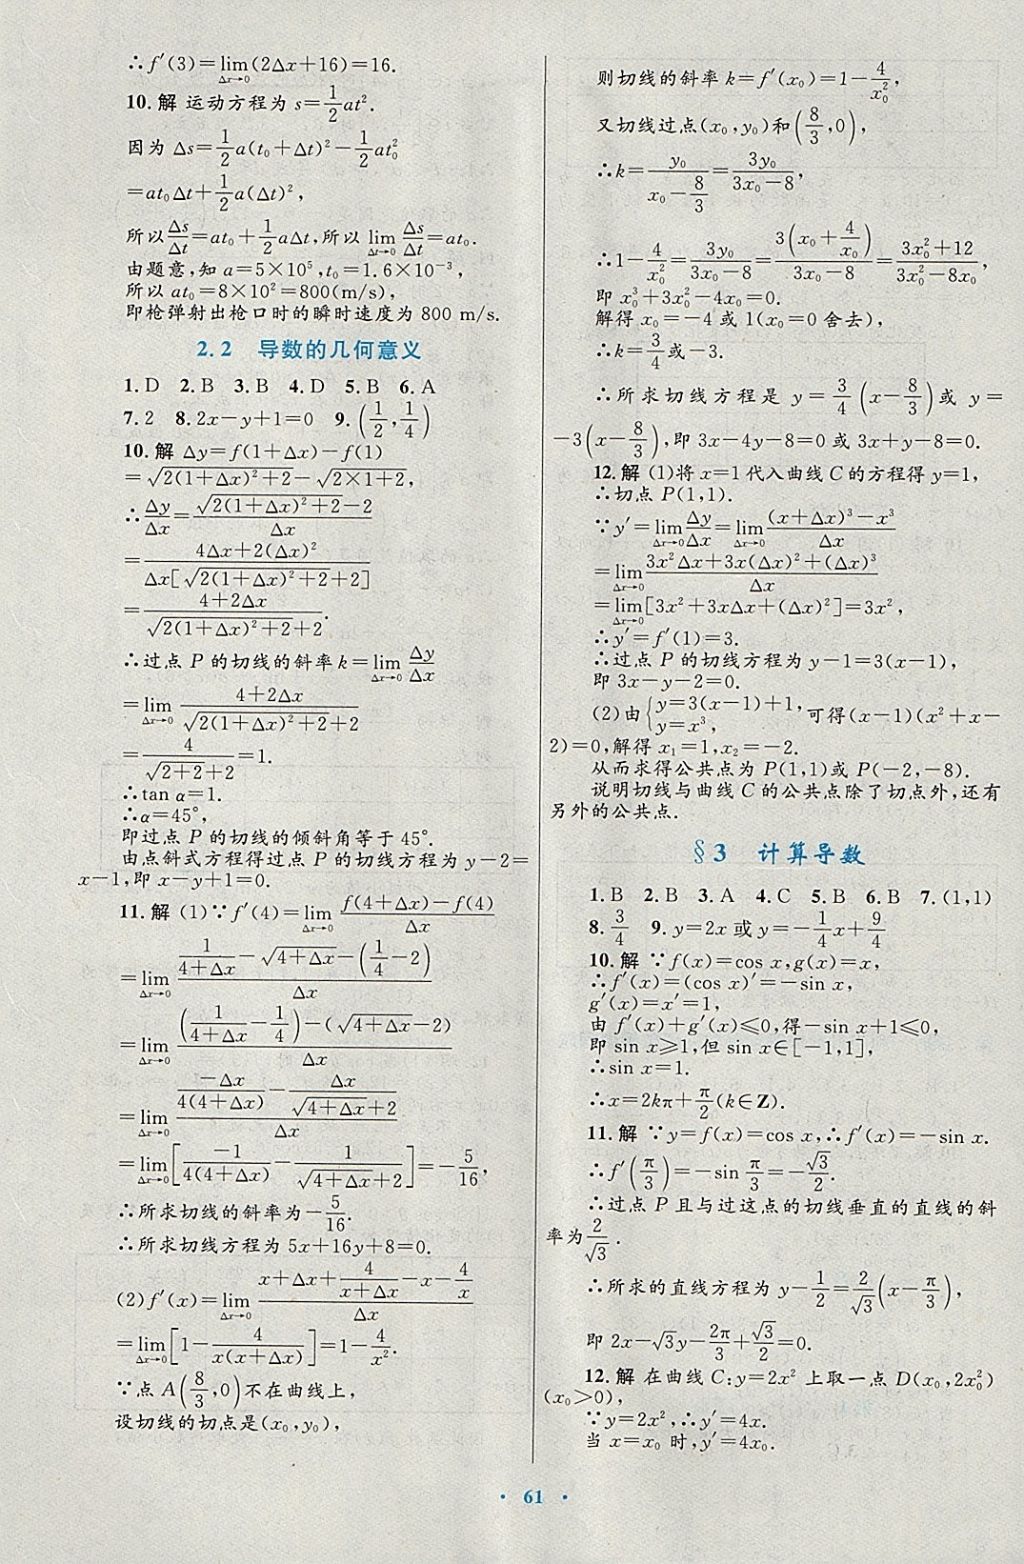 ∴f′(3)=lim_{Δx→0}(2Δx+16)=16.
10.解 运动方程为 s=\frac{1}{2}at².
因为 Δs=\frac{1}{2}a(t₀+Δt)²-\frac{1}{2}at₀²
=at₀Δt+\frac{1}{2}a(Δt)²,
所以\frac{Δs}{Δt}=at₀+\frac{1}{2}aΔt,所以 lim_{Δt→0}\frac{Δs}{Δt}=at₀.
由题意,知 a=5×10⁵,t₀=1.6×10⁻³,
所以 at₀=8×10²=800(m/s),
即枪弹射出枪口时的瞬时速度为 800 m/s.
2.2 导数的几何意义
1.D 2.B 3.B 4.D 5.B 6.A
7.2 8.2x-y+1=0 9.(\frac{1}{2},\frac{1}{4})
10.解 Δy=f(1+Δx)-f(1)
=\sqrt{2(1+Δx)²+2}-\sqrt{2×1+2},
∴\frac{Δy}{Δx}=\frac{\sqrt{2(1+Δx)²+2}-2}{Δx}
=\frac{4Δx+2(Δx)²}{Δx[\sqrt{2(1+Δx)²+2}+2]}
=\frac{4+2Δx}{\sqrt{2(1+Δx)²+2}+2}.
∴过点 P 的切线的斜率 k=lim_{Δx→0}\frac{Δy}{Δx}
=lim_{Δx→0}\frac{4+2Δx}{\sqrt{2(1+Δx)²+2}+2}
=\frac{4}{\sqrt{2+2}+2}=1.
∴tan α=1.
∴α=45°,
即过点 P 的切线的倾斜角等于 45°.
由点斜式方程得过点 P 的切线方程为 y-2=
x-1,即 x-y+1=0.
11.解 (1)∵f′(4)=lim_{Δx→0}\frac{f(4+Δx)-f(4)}{Δx}
=lim_{Δx→0}\frac{\frac{1}{4+Δx}-\sqrt{4+Δx}-(\frac{1}{4}-2)}{Δx}
=lim_{Δx→0}\frac{(\frac{1}{4+Δx}-\frac{1}{4})-(\sqrt{4+Δx}-2)}{Δx}
=lim_{Δx→0}\frac{\frac{-Δx}{4(4+Δx)}-\frac{Δx}{\sqrt{4+Δx}+2}}{Δx}
=lim_{Δx→0}[\frac{-1}{4(4+Δx)}-\frac{1}{\sqrt{4+Δx}+2}]=-\frac{5}{16},
∴所求切线的斜率为-\frac{5}{16}.
∴所求切线方程为 5x+16y+8=0.
(2)f′(x)=lim_{Δx→0}\frac{x+Δx+\frac{4}{x+Δx}-x-\frac{4}{x}}{Δx}
=lim_{Δx→0}[1-\frac{4}{x(x+Δx)}]=1-\frac{4}{x²}.
∵点 A(\frac{8}{3},0)不在曲线上,
设切线的切点是(x₀,y₀),
则切线的斜率 k=f′(x₀)=1-\frac{4}{x₀²},
又切线过点(x₀,y₀)和(\frac{8}{3},0),
∴k=\frac{y₀}{x₀-\frac{8}{3}}=\frac{3y₀}{3x₀-8},
∴1-\frac{4}{x₀²}=\frac{3y₀}{3x₀-8}=\frac{3(x₀+\frac{4}{x₀})}{3x₀-8}=\frac{3x₀²+12}{3x₀²-8x₀},
即 x₀³+3x₀²-4x₀=0.
解得 x₀=-4 或 1(x₀=0 舍去),
∴k=\frac{3}{4}或-3.
∴所求切线方程是 y=\frac{3}{4}(x-\frac{8}{3})或 y=
-3(x-\frac{8}{3}),即 3x-4y-8=0 或 3x+y-8=0.
12.解 (1)将 x=1 代入曲线 C 的方程得 y=1,
∴切点 P(1,1).
∵y′=lim_{Δx→0}\frac{Δy}{Δx}=lim_{Δx→0}\frac{(x+Δx)³-x³}{Δx}
=lim_{Δx→0}\frac{3x²Δx+3x(Δx)²+(Δx)³}{Δx}
=lim_{Δx→0}[3x²+3xΔx+(Δx)²]=3x²,
∴y′=f′(1)=3.
∴过点 P 的切线方程为 y-1=3(x-1),
即 3x-y-2=0.
(2)由{y=3(x-1)+1, y=x³, 可得(x-1)(x²+x-
2)=0,解得 x₁=1,x₂=-2.
从而求得公共点为 P(1,1)或 P(-2,-8).
说明切线与曲线 C 的公共点除了切点外,还有
另外的公共点.
§3 计算导数
1.B 2.B 3.A 4.C 5.B 6.B 7.(1,1)
8.\frac{3}{4} 9.y=2x 或 y=-\frac{1}{4}x+\frac{9}{4}
10.解 ∵f(x)=cos x,g(x)=x,
∴f′(x)=(cos x)′=-sin x,
g′(x)=x′=1,
由 f′(x)+g′(x)≤0,得-sin x+1≤0,
即 sin x≥1,但 sin x∈[-1,1],
∴sin x=1.
∴x=2kπ+\frac{π}{2}(k∈Z).
11.解 ∵y=f(x)=cos x,∴f′(x)=-sin x.
∴f′(\frac{π}{3})=-sin \frac{π}{3}=-\frac{\sqrt{3}}{2}.
∴过点 P 且与过这点的切线垂直的直线的斜
率为\frac{2}{\sqrt{3}}.
∴所求的直线方程为 y-\frac{1}{2}=\frac{2}{\sqrt{3}}(x-\frac{π}{3}),
即 2x-\sqrt{3}y-\frac{2π}{3}+\frac{\sqrt{3}}{2}=0.
12.解 在曲线 C:y=2x² 上取一点 D(x₀,2x₀²)
(x₀>0),
∵y=2x²,∴y′=4x.
当 x=x₀ 时,y′=4x₀.
· 61 ·